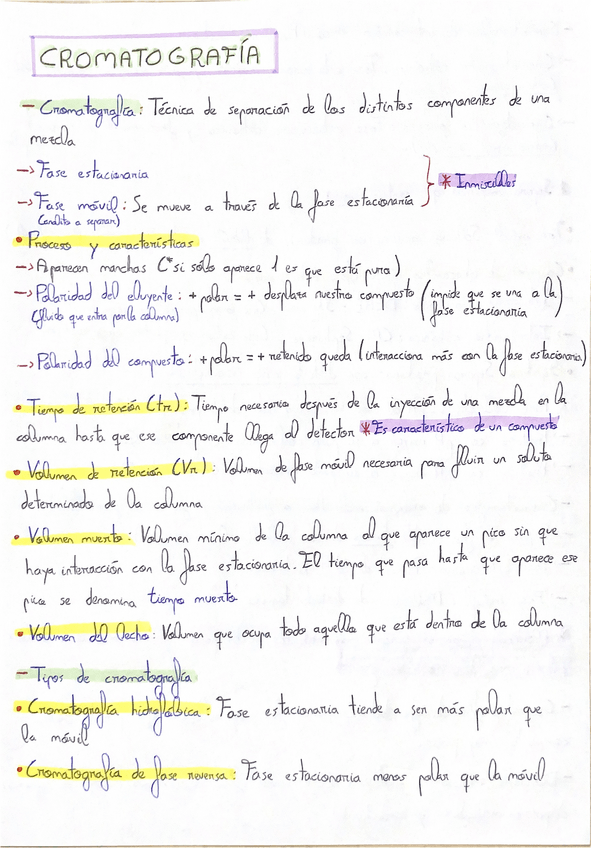 CROMATOGRAFÍA
- Cromatografía: Técnica de separación de los distintos componentes de una
mezcla
-> Fase estacionaria
* Inmiscibles
-> Fase móvil: Se mueve a través de la fase estacionaria
(analito a separar)
• Proceso y características
-> Aparecen manchas (*si sólo aparece 1 es que está pura)
-> Polaridad del eluyente: + polar = + desplaza nuestro compuesto (impide que se una a la
fase estacionaria)
(fluido que entra por la columna)
-> Polaridad del compuesto: + polar = + retenido queda (interacciona más con la fase estacionaria)
• Tiempo de retención (tr): Tiempo necesario después de la inyección de una mezcla en la
columna hasta que ese componente llega al detector *Es característico de un compuesto
• Volumen de retención (Vr): Volumen de fase móvil necesario para fluir un soluto
determinado de la columna
• Volumen muerto: Volumen mínimo de la columna al que aparece un pico sin que
haya interacción con la fase estacionaria. El tiempo que pasa hasta que aparece ese
pico se denomina tiempo muerto
• Volumen del lecho: Volumen que ocupa todo aquello que está dentro de la columna
- Tipos de cromatografía
• Cromatografía hidrofóbica: Fase estacionaria tiende a ser más polar que
la móvil
• Cromatografía de fase reversa: Fase estacionaria menos polar que la móvil